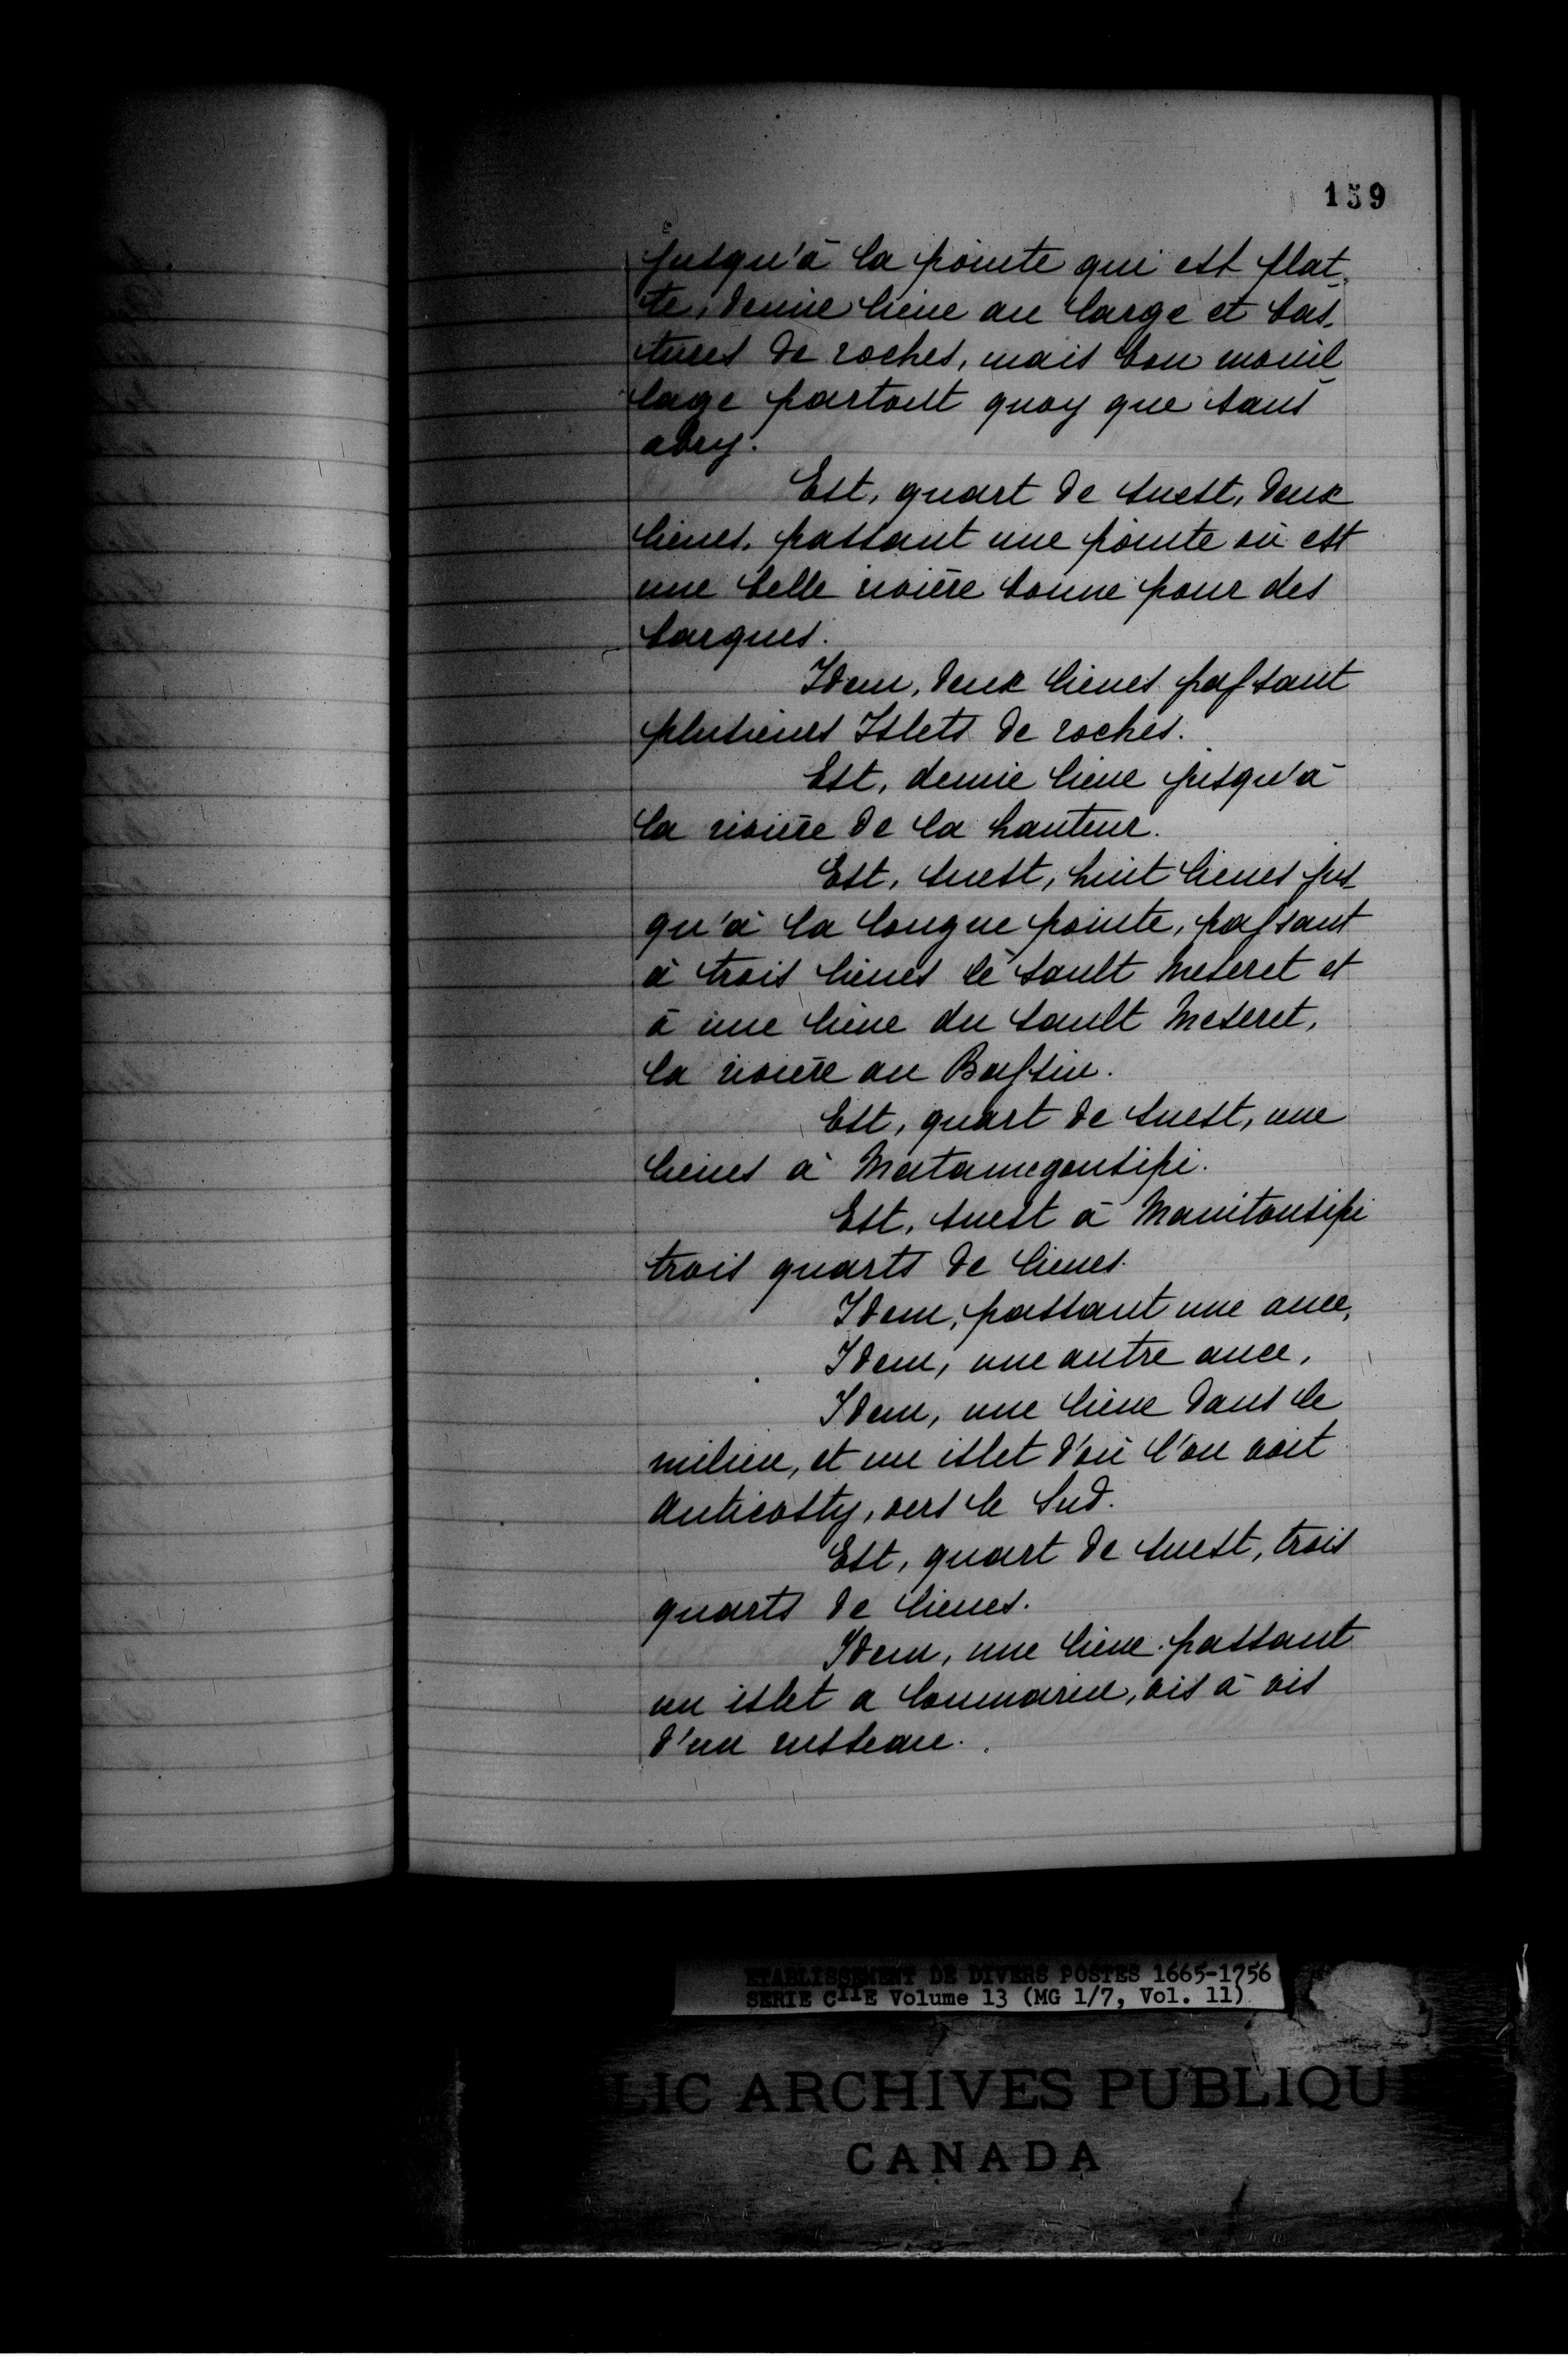 159
jusqu'à la pointe qui est flat-
te, demie lieue au large et bas-
tures de roches, mais bon mouil-
lage partout quoy que sans
abry.
Est, quart de suest, deux
lieues, passant une pointe où est
une belle rivière bonne pour des
barques.
Idem, deux lieues passant
plusieurs Islets de roches.
Est, demie lieue jusqu'à
la rivière de la hauteur.
Est, suest, huit lieues jus-
qu'à la longue pointe, passant
à trois lieues le sault Meseret et
à une lieue du sault Meseret,
la rivière au Bassin.
Est, quart de suest, une
lieues à Matamegousipi.
Est, suest à Manitousipi
trois quarts de lieues.
Idem, passant une ance,
Idem, une autre ance,
Idem, une lieue dans le
milieu, et un islet d'où l'on voit
Anticosty, vers le Sud.
Est, quart de suest, trois
quarts de lieues.
Idem, une lieue passant
un islet a loumarin, vis à vis
d'un russeau.
ETABLISSEMENT DE DIVERS POSTES 1665-1756
SERIE CIIE Volume 13 (MG 1/7, Vol. 11)
LIC ARCHIVES PUBLIQU
CANADA